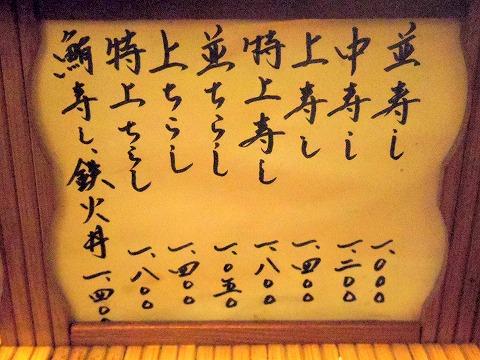 並寿し 一、〇〇〇
中寿し 一、二〇〇
上寿し 一、四〇〇
特上寿し 一、八〇〇
並ちらし 一、〇五〇
上ちらし 一、四〇〇
特上ちらし 一、八〇〇
鮪寿し、鉄火丼 一、四〇〇